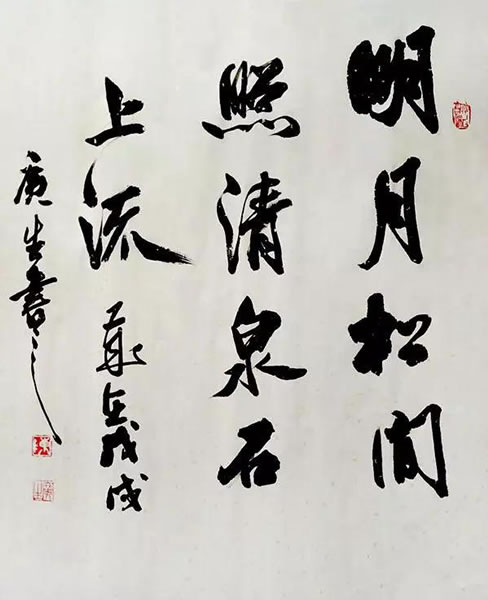 明月松間
照清泉石
上流 歲在戊戌
廣生書之